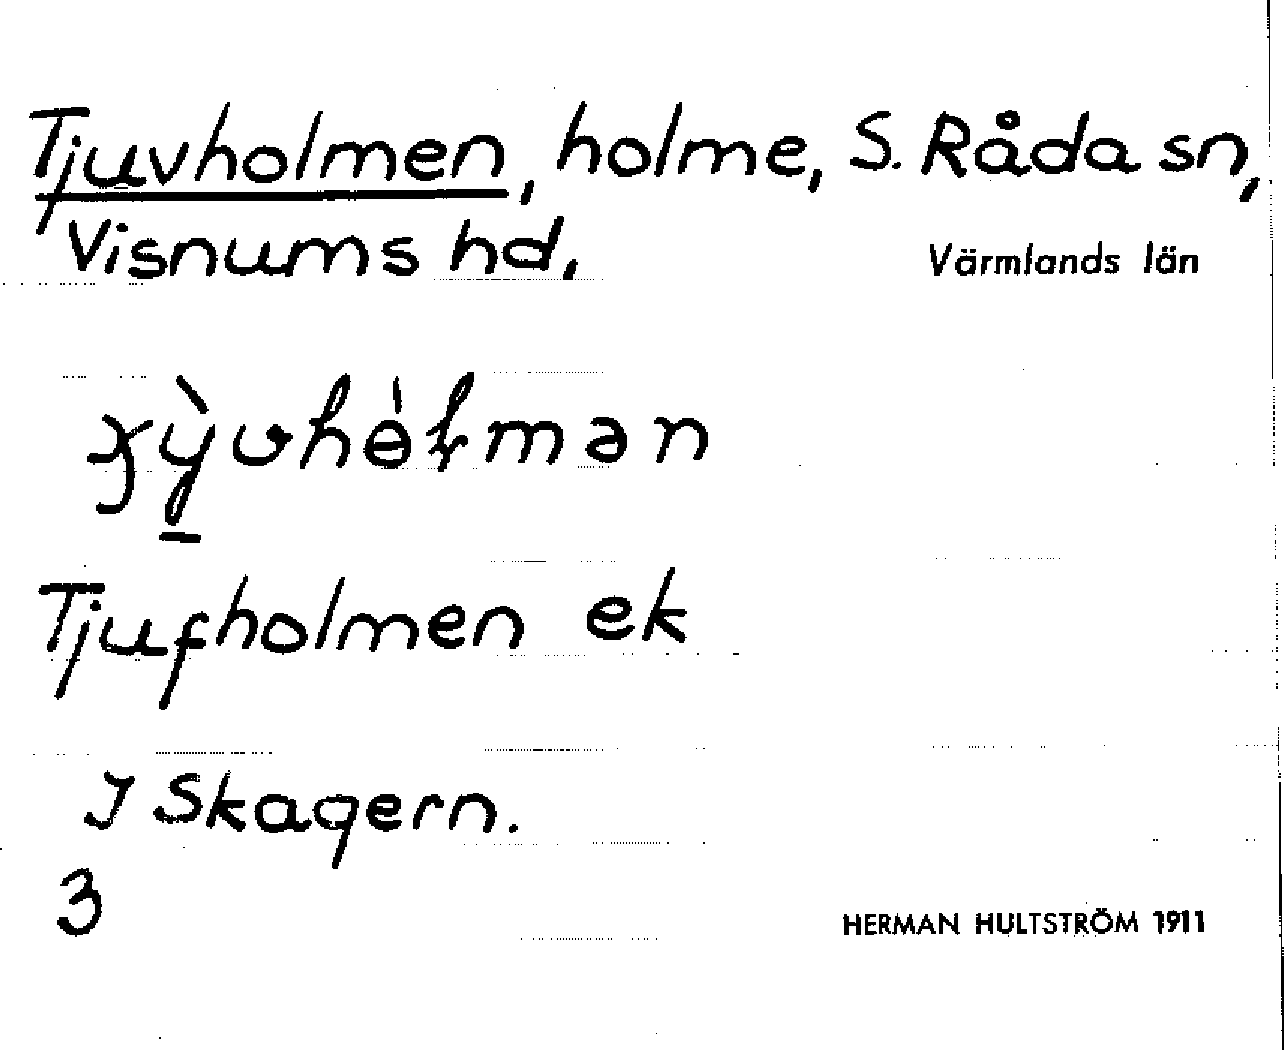 Tjuvholmen, holme, S. Råda sn,
Visnums hd, Värmlands län
Tjufholmen ek
I Skagern.
3
HERMAN HULTSTRÖM 1911